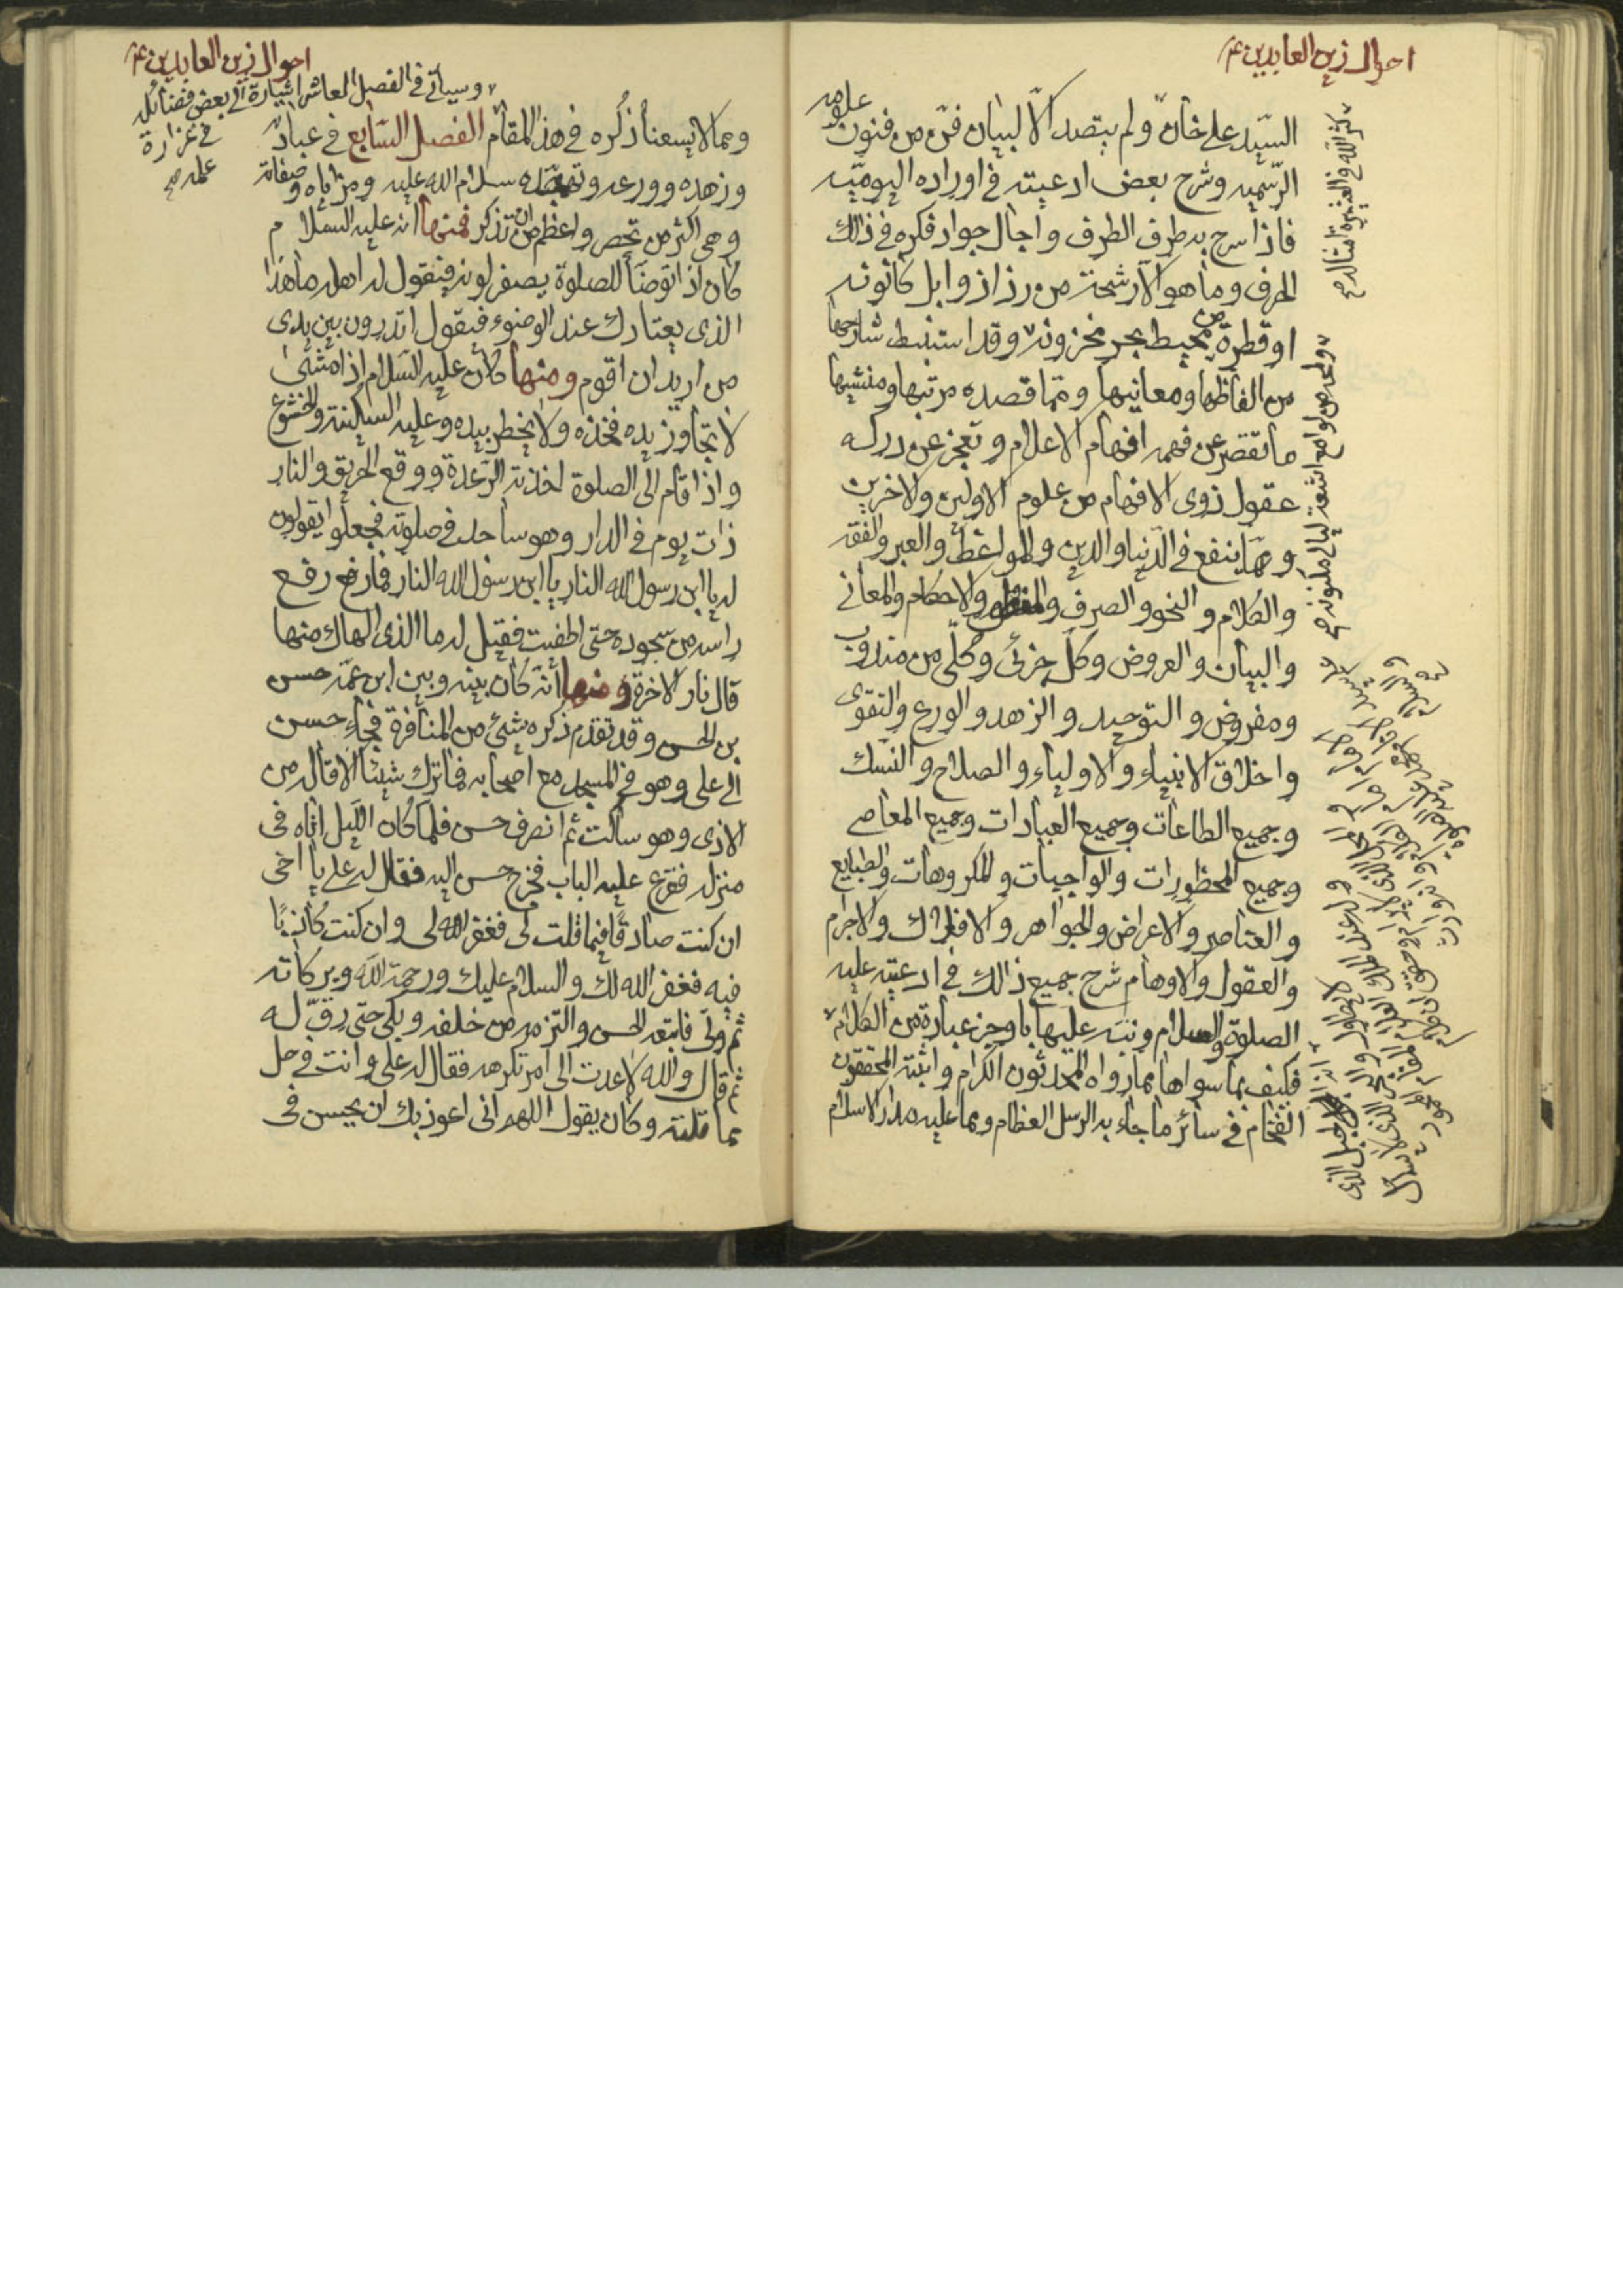 احوال زين العابدين ع
السيّد علي خان ولم يتصد الّا لبيان فنّ من فنون علومه
الرّسميه وشرح بعض ادعيته في اوراده اليوميّه
فاذا سرح به طرف الطرف واجال جواد فكره في ذلك
الحرف وما هو الّا رشحة من رذاذ وابل كانونه
او قطرة من محيط بحر مخزونه وقد استنبط شارحها
من الفاظها ومعانيها ومما قصده مرتبها ومنشيها
ما تقصر عن فهمه افهام الاعلام وتعجز عن دركه
عقول ذوى الافهام من علوم الاولين والاخرين
ومما ينفع في الدّنيا والدين والمواعظ والعبر والفقه
والكلام والنحو والصرف والاحكام والمعانى
والبيان والعروض وكل جزئى وكلّى من مندوب
ومفروض والتوحيد والزهد والورع والتقوى
واخلاق الانبياء والاولياء والصلاح والنّسك
وجميع الطاعات وجميع العبادات وجميع المعاصى
وجميع المحظورات والواجبات والمكروهات والطبايع
والعناصر والاعراض والجواهر والافلاك والاجرام
والعقول والاوهام شرح جميع ذلك في ادعيته عليه
الصلوة والسلام ونبّه عليها باوجز عبارة من الكلام
فكيف بما سواها مما رواه المحدثون الكرام واثبته المحققون
الفخام في سائر ما جاء به الرسل العظام ومما عليه مدار الاسلام
احوال زين العابدين ع
وسياتى في الفصل العاشر اشارة الى بعض فضائله
في غزارة
علمه صح
ومما لا يسعنا ذكره في هذا المقام الفصل السّابع في عبادته
وزهده وورعه سلام الله عليه ومزاياه وصفاته
وهي اكثر من تحصر واعظم من ان تذكر فمنها انه عليه السلام
كان اذا توضأ للصلوة يصفر لونه فيقول له اهله ما هذا
الذى يعتادك عند الوضوء فيقول اتدرون بين يدى
من اريد ان اقوم ومنها كان عليه السّلام اذا مشى
لا تجاوز يده فخذه ولا يخطر بيده وعليه السكينة والخشوع
واذا قام الى الصلوة اخذته الرّعدة ووقع الحريق والنار
ذات يوم في الدار وهو ساجد في صلوته فجعلوا يقولون
له يا ابن رسول الله النار يا ابن رسول الله النار فما رفع
راسه من سجوده حتى اطفيت فقيل له ما الذى الهاك منها
قال نار الاخرة ومنها انّه كان بينه وبين ابن عمّه حسن
بن الحسن وقد تقدم ذكره شئ من المنافرة فجاء حسن
الى على وهو في المسجد مع اصحابه فما ترك شيئا الا قاله من
الاذى وهو ساكت ثم انصرف حسن فلما كان اللّيل اتاه فى
منزله فقرع عليه الباب فخرج حسن اليه فقال له على يا اخى
ان كنت صادقا فيما قلت لى فغفر الله لى وان كنت كاذبًا
فيه فغفر الله لك والسلام عليك ورحمة الله وبركاته
ثم ولّى فاتبعه الحسن والتزمه من خلفه وبكى حتى رقّ له
ثم قال والله لا عدت الى امر تكرهه فقال له على وانت في حل
مما قلته وكان يقول اللهم انى اعوذ بك ان يحسن فى